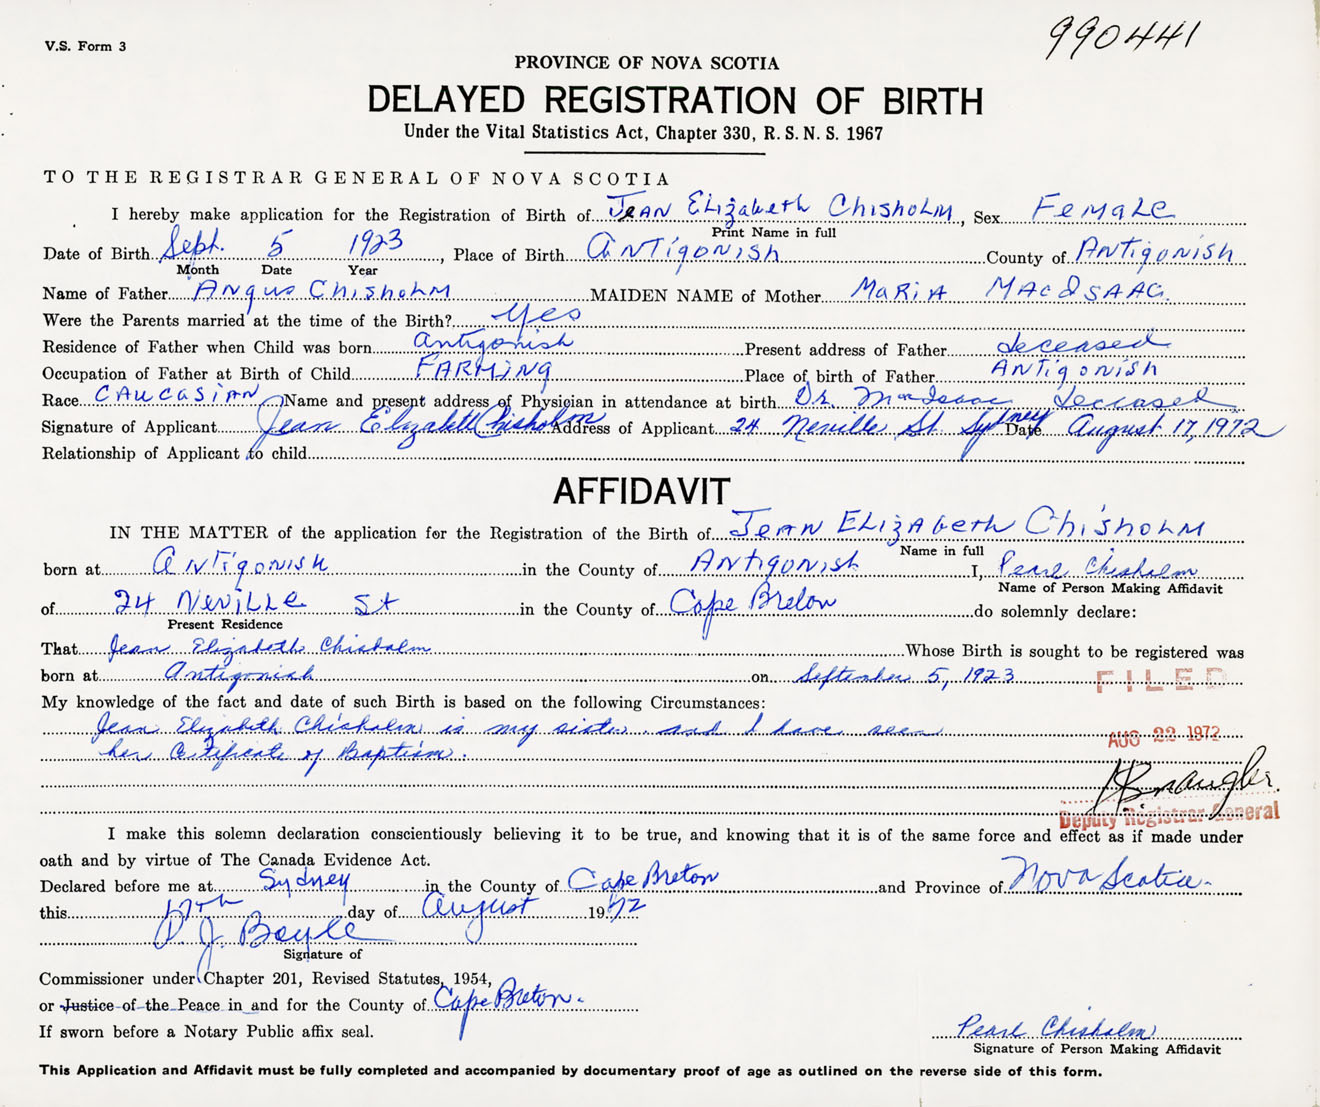 990441
V.S. Form 3
PROVINCE OF NOVA SCOTIA
DELAYED REGISTRATION OF BIRTH
Under the Vital Statistics Act, Chapter 330, R. S. N. S. 1967
TO THE REGISTRAR GENERAL OF NOVA SCOTIA
I hereby make application for the Registration of Birth of Jean Elizabeth Chisholm, Sex Female
Print Name in full
Date of Birth Sept. 5 1923, Place of Birth Antigonish County of Antigonish
Month Date Year
Name of Father Angus Chisholm MAIDEN NAME of Mother Maria MacIsaac
Were the Parents married at the time of the Birth? Yes
Residence of Father when Child was born Antigonish Present address of Father deceased
Occupation of Father at Birth of Child FARMING Place of birth of Father Antigonish
Race Caucasian Name and present address of Physician in attendance at birth Dr. MacIsaac Deceased
Signature of Applicant Jean Elizabeth Chisholm Address of Applicant 24 Neville St. Sydney Date August 17, 1972
Relationship of Applicant to child
AFFIDAVIT
IN THE MATTER of the application for the Registration of the Birth of Jean Elizabeth Chisholm
Name in full
born at Antigonish in the County of Antigonish I, Pearl Chisholm
Name of Person Making Affidavit
of 24 Neville St in the County of Cape Breton do solemnly declare:
Present Residence
That Jean Elizabeth Chisholm Whose Birth is sought to be registered was
born at Antigonish on September 5, 1923
FILED
My knowledge of the fact and date of such Birth is based on the following Circumstances:
Jean Elizabeth Chisholm is my sister and I have seen
her Certificate of Baptism.
AUG 22 1972
Deputy Registrar General
I make this solemn declaration conscientiously believing it to be true, and knowing that it is of the same force and effect as if made under
oath and by virtue of The Canada Evidence Act.
Declared before me at Sydney in the County of Cape Breton and Province of Nova Scotia.
this 17th day of August 1972
D J. Boyle
Signature of
Commissioner under Chapter 201, Revised Statutes, 1954,
or Justice of the Peace in and for the County of Cape Breton.
If sworn before a Notary Public affix seal.
Pearl Chisholm
Signature of Person Making Affidavit
This Application and Affidavit must be fully completed and accompanied by documentary proof of age as outlined on the reverse side of this form.